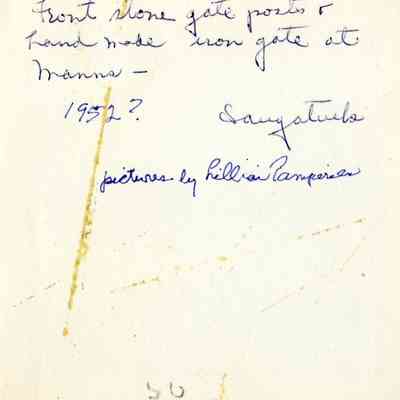 Front stone gate posts &
hand made iron gate at
Manns —
1952? Saugatuck
pictures by Lillian
50